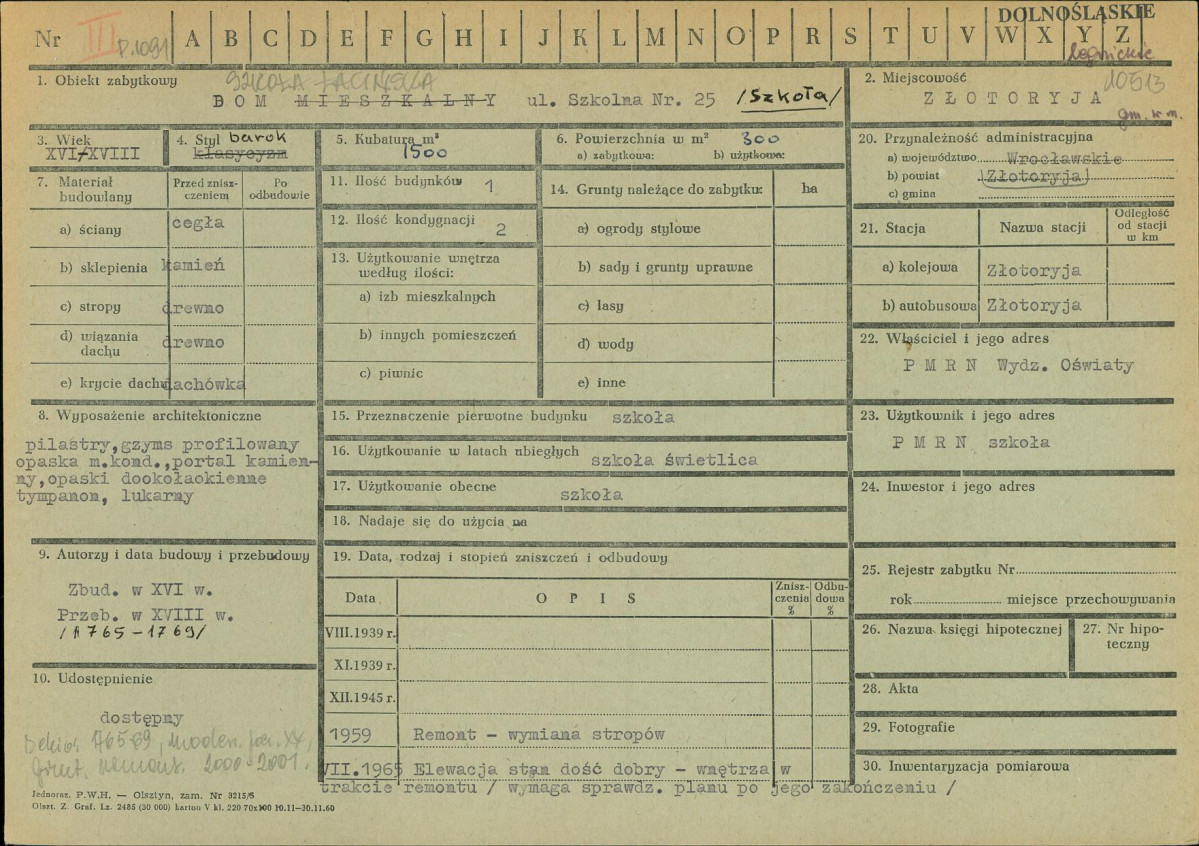 DOLNOŚLĄSKIE
Nr III p.1091 A B C D E F G H I J K L M N O P R S T U V W X Y Z
legnickie
1. Obiekt zabytkowy SZKOŁA ŁACIŃSKA
DOM MIESZKALNY ul. Szkolna Nr. 25 /Szkoła/
2. Miejscowość 10513
ZŁOTORYJA
gm. m.
3. Wiek
XVI/XVIII
4. Styl barok
klasycyzm
5. Kubatura m³
1500
6. Powierzchnia w m² 300
a) zabytkowa: b) użytkowa:
20. Przynależność administracyjna
a) województwo Wrocławskie
b) powiat Złotoryja
c) gmina
7. Materiał budowlany
Przed zniszczeniem
Po odbudowie
a) ściany cegła
b) sklepienia kamień
c) stropy drewno
d) wiązania dachu drewno
e) krycie dachu dachówka
11. Ilość budynków 1
12. Ilość kondygnacji 2
13. Użytkowanie wnętrza
według ilości:
a) izb mieszkalnych
b) innych pomieszczeń
c) piwnic
14. Grunty należące do zabytku: ha
a) ogrody stylowe
b) sady i grunty uprawne
c) lasy
d) wody
e) inne
21. Stacja Nazwa stacji Odległość od stacji w km
a) kolejowa Złotoryja
b) autobusowa Złotoryja
22. Właściciel i jego adres
P M R N Wydz. Oświaty
8. Wyposażenie architektoniczne
pilastry,gzyms profilowany
opaska m.kond.,portal kamien-
ny,opaski dookołaokienne
tympanon, lukarny
15. Przeznaczenie pierwotne budynku szkoła
16. Użytkowanie w latach ubiegłych szkoła świetlica
17. Użytkowanie obecne szkoła
18. Nadaje się do użycia na
23. Użytkownik i jego adres
P M R N szkoła
24. Inwestor i jego adres
9. Autorzy i data budowy i przebudowy
Zbud. w XVI w.
Przeb. w XVIII w.
/1765-1769/
19. Data, rodzaj i stopień zniszczeń i odbudowy
Data O P I S Znisz-czenia % Odbu-dowa %
VIII.1939 r.
XI.1939 r.
XII.1945 r.
1959 Remont - wymiana stropów
VII.1965 Elewacja stan dość dobry - wnętrza w
trakcie remontu / wymaga sprawdz. planu po jego zakończeniu /
25. Rejestr zabytku Nr
rok miejsce przechowywania
26. Nazwa księgi hipotecznej
27. Nr hipo-
teczny
28. Akta
29. Fotografie
30. Inwentaryzacja pomiarowa
10. Udostępnienie
dostępny
1765-69, moder. XX,
remont. 2000-2001.
Jednoraz. P.W.H. — Olsztyn, zam. Nr 3215/6
Olszt. Z. Graf. Lz. 2485 (30 000) karton V kl. 220 70x100 10.11—30.11.60